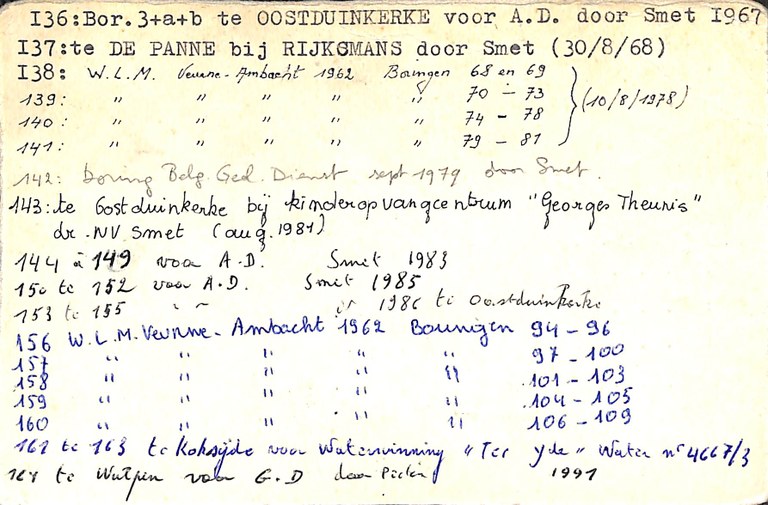 I36:Bor.3+a+b te OOSTDUINKERKE voor A.D. door Smet I967
I37:te DE PANNE bij RIJKSMANS door Smet (30/8/68)
I38: W.L.M. Veurne-Ambacht 1962 Boringen 68 en 69
139: " " " " " 70 - 73 (10/8/1978)
140: " " " " " 74 - 78
141: " " " " " 79 - 81
142: boring Belg. Geol. Dienst sept 1979 door Smet.
143: te Oostduinkerke bij kinderopvangcentrum "Georges Theunis"
dr. NV Smet (aug. 1981)
144 à 149 voor A.D. Smet 1983
150 te 152 voor A.D. Smet 1985
153 te 155 " " 1986 te Oostduinkerke
156 W.L.M. Veurne-Ambacht 1962 Boringen 94-96
157 " " " " " 97-100
158 " " " " " 101-103
159 " " " " " 104-105
160 " " " " " 106-109
161 te 163 te Koksijde voor Waterwinning "Ter Yde" Water n° 4667/3
164 te Wulpen voor G.D door 1991